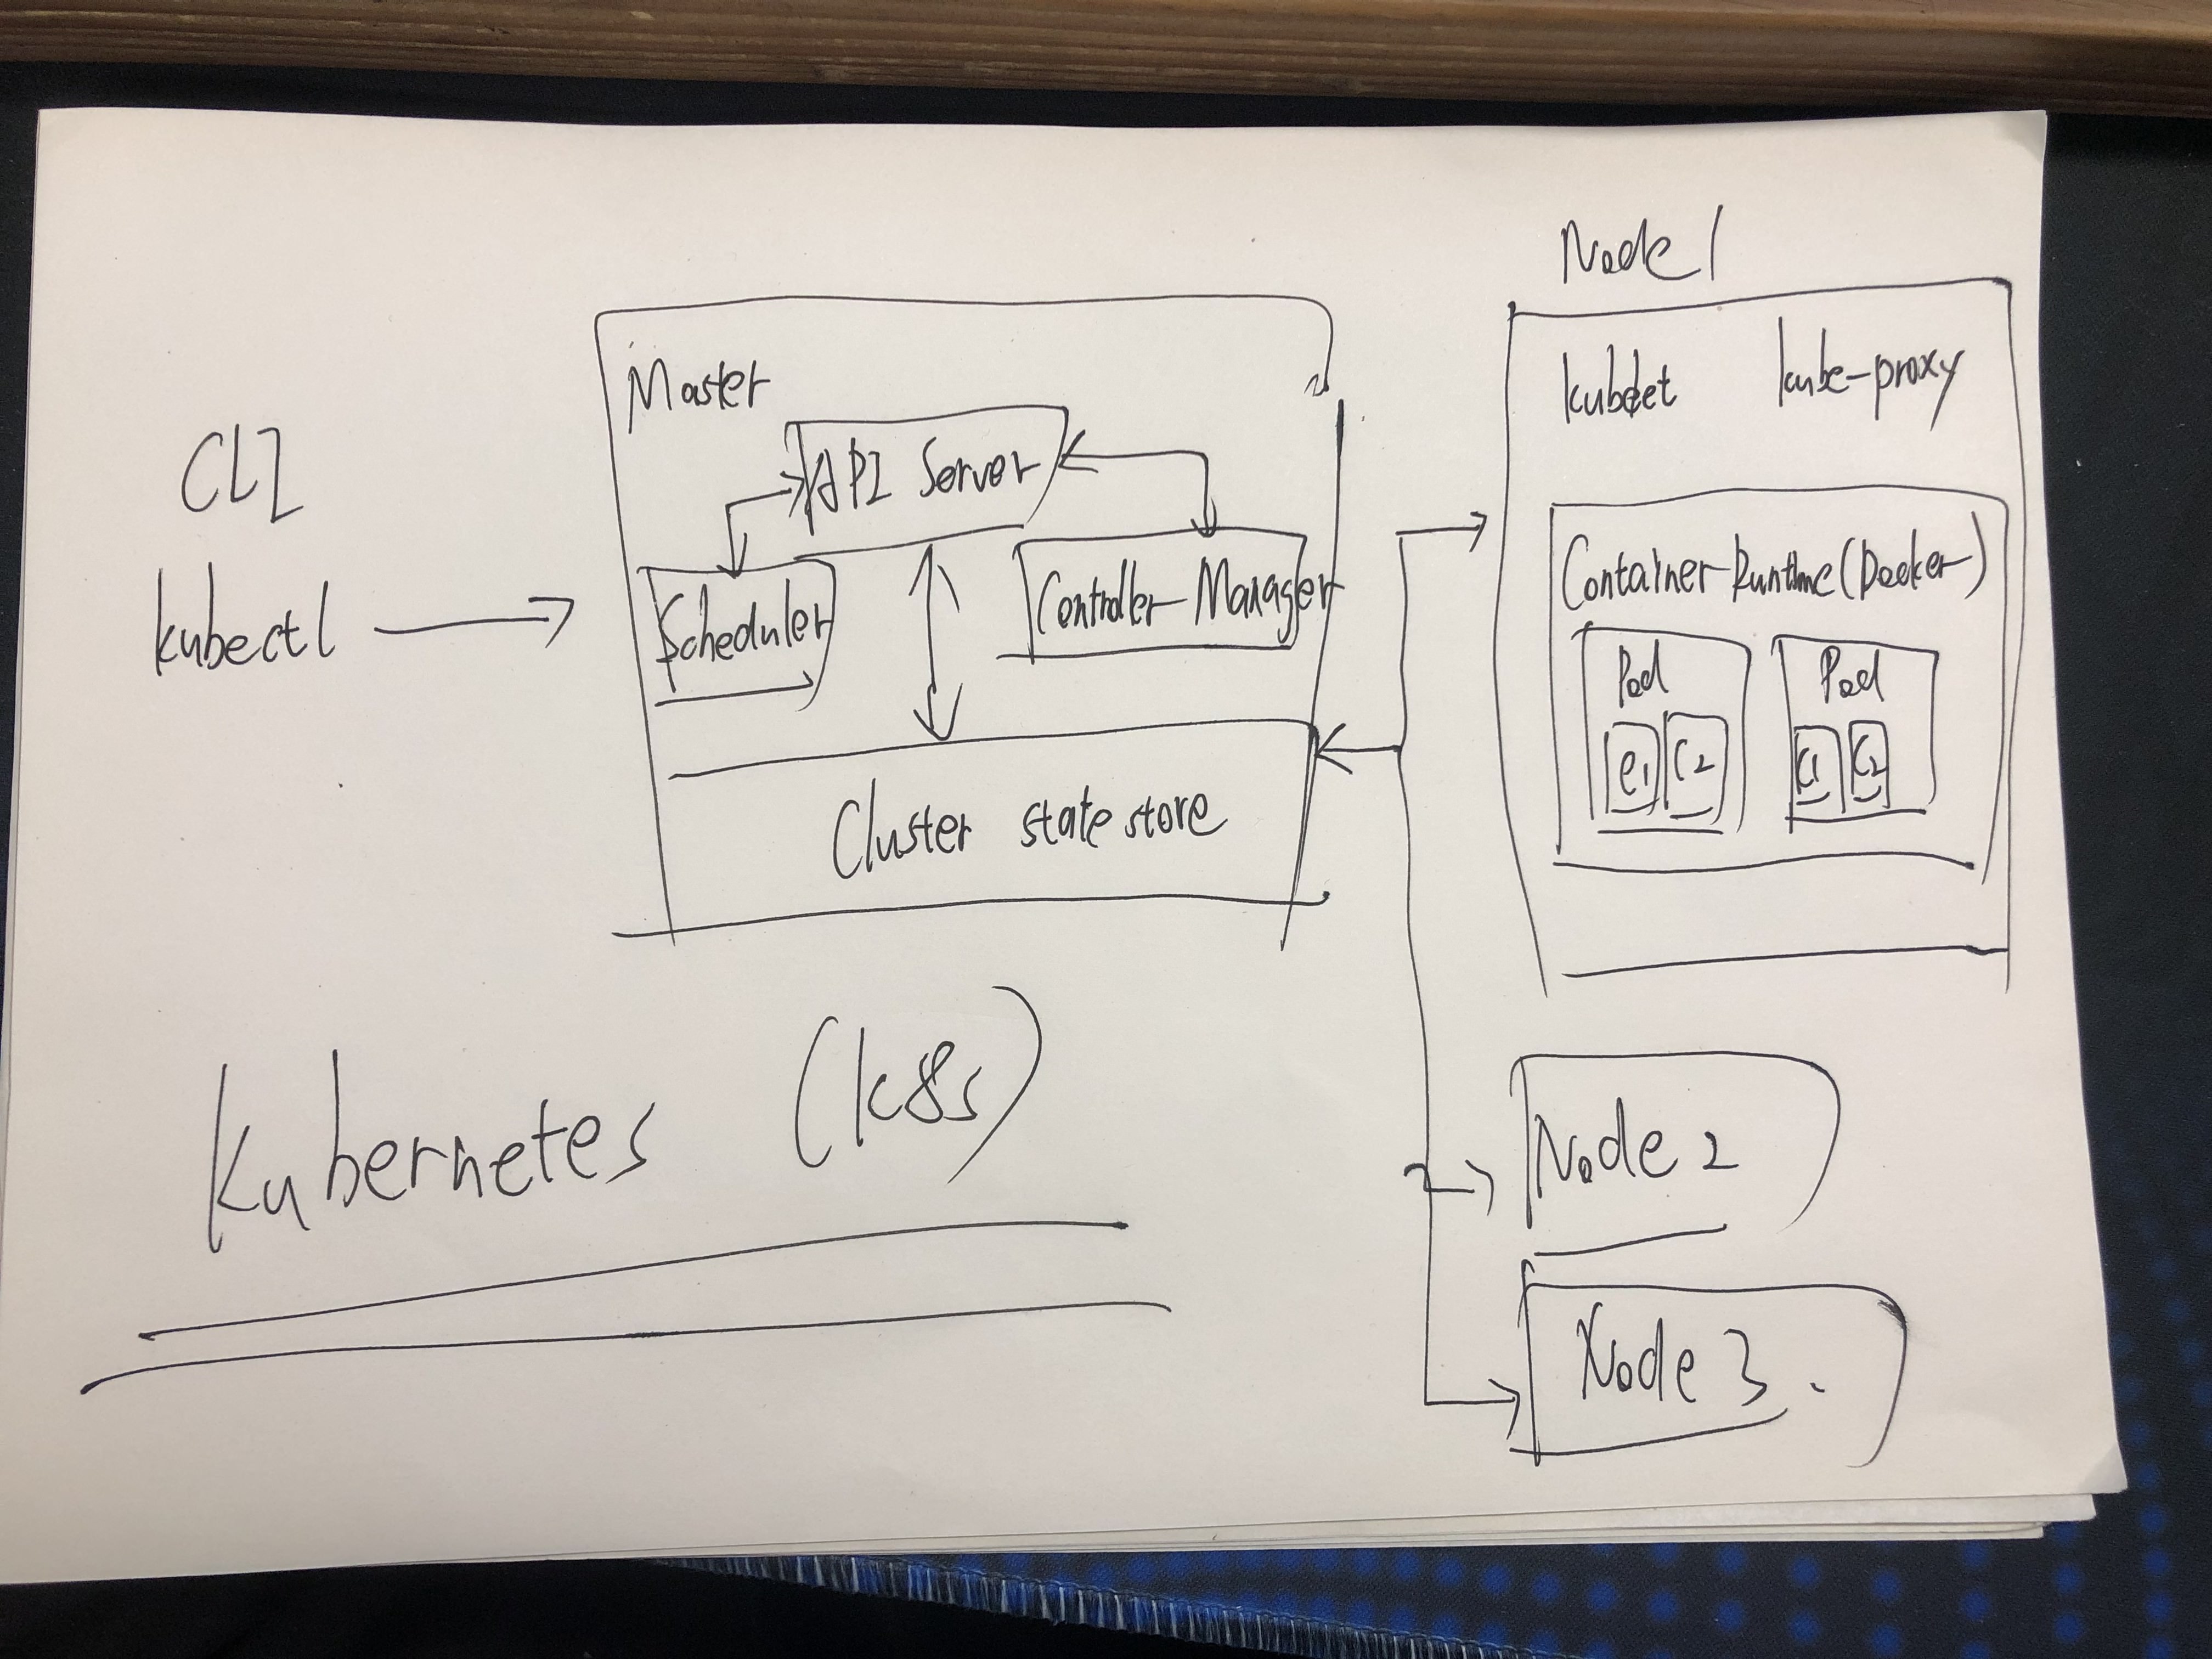 CLI
kubectl
Master
API Server
Scheduler
Controller-Manager
Cluster state store
Node 1
kubelet
kube-proxy
Container Runtime (Docker)
Pod
C1
C2
Pod
C1
C2
Node 2
Node 3.
Kubernetes (k8s)